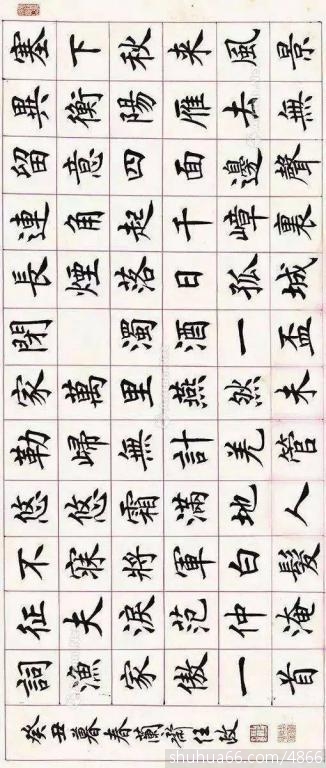 塞下秋来風景
異衡陽雁去無
留意四面邊聲
連角起千嶂裏
長煙落日孤城
閉濁酒一盃
家萬里燕然未
勒歸無計羌管
悠悠霜滿地人
不寐將軍白髮
征夫淚范仲淹
詞漁家傲一首
癸丑暮春蘭齋任政
shuhua66.com/4866